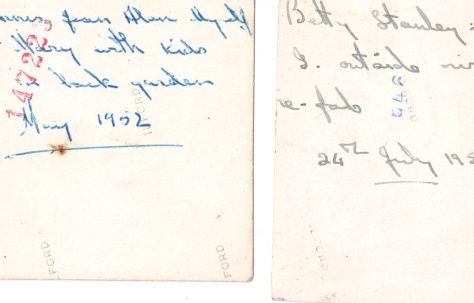 Jean Alan Myself
Mary with kids
in back garden
May 1952
14722
ILFORD
LFORD
FORD
Betty Stanley
S. outside
e-fab
24th July 195